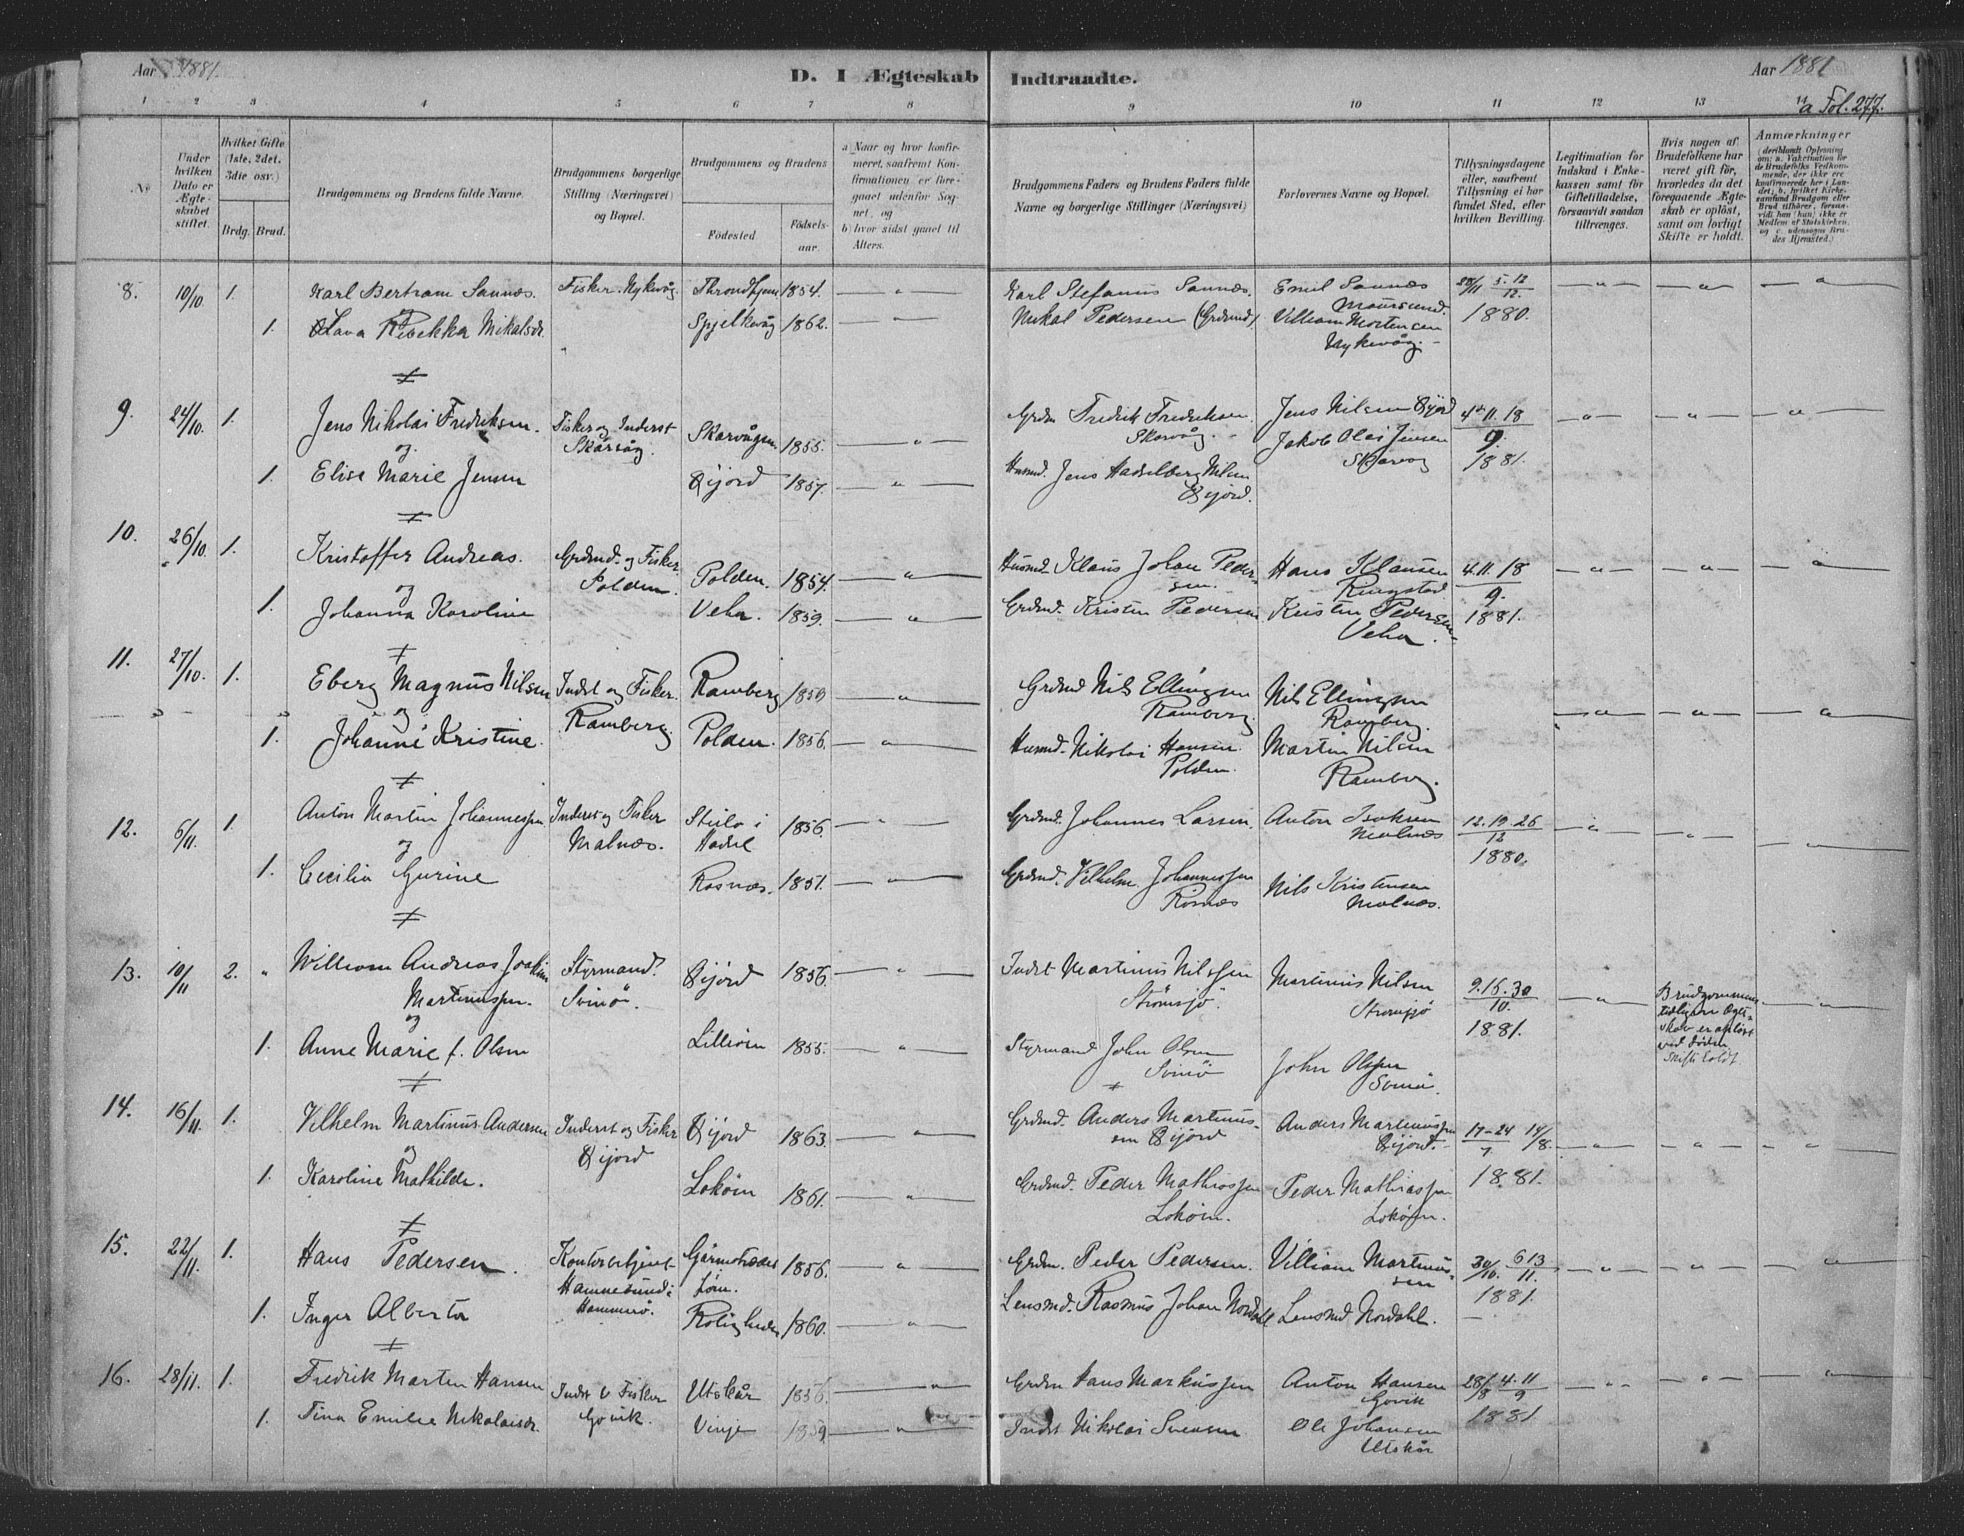 Aar 1881.
D. I Ægteskab Indtraadte.
Aar 1881
a Fol. 277.
1 2 3 4 5 6 7 8 9 10 11 12 13 14
No
Under hvilken Dato er Ægteskabet stiftet.
Hvilket Gifte (1ste, 2det, 3die osv.)
Brdg. Brud.
Brudgommens og Brudens fulde Navne.
Brudgommens borgerlige Stilling (Næringsvei) og Bopæl.
Brudgommens og Brudens
Fødested. Fødselsaar.
a) Naar og hvor konfirmeret, saafremt Konfirmationen er foregaaet udenfor Sognet, og
b) hvor sidst gaaet til Alters.
Brudgommens Faders og Brudens Faders fulde Navne og borgerlige Stillinger (Næringsvei)
Forlovernes Navne og Bopæl.
Tillysningsdagene eller, saafremt Tillysning ei har fundet Sted, efter hvilken Bevilling.
Legitimation for Indskud i Enkekassen samt for Giftetilladelse, forsaavidt saadan tiltrænges.
Hvis nogen af Brudefolkene har været gift før, hvorledes da det foregaaende Ægteskab er opløst, samt om lovligt Skifte er holdt.
Anmærkninger
8. 10/10. 1. Karl Bertram Sannæs. Fisker. Nykevåg Throndhjem 1854. Karl Stefanus Sannæs. Emil Sannæs Maursund. 28/11 5.12/12.
1. Rebekka Mikalsdr. Spjelkevåg 1862. Mikal Pedersen (Grdmd) Villiam Mortensen Nykevåg. 1880.
9. 24/10. 1. Jens Nikolai Fredriksen. Fisker og Inderst Skarvåg. Skarvågen 1855. Grdm Fredrik Fredriksen Skarvåg. Jens Nilsen 4. 11. 18/9.
og
1. Elise Marie Jensen 1857. Husmd. Jens Hadselberg Nilsen Jakob Olai Jensen Skarvåg 1881.
10. 26/10. 1. Kristoffer Andreas. Grdmd. og Fisker. Polden. Polden. 1854. Husmd. Klaus Johan Pedersen. Hans Klausen Ringstad 4. 11. 18/9.
og
1. Johanna Karoline Veha. 1859. Grdmd. Kristen Pedersen Kristen Pedersen Veha. 1881.
11. 27/10. 1. Eberg Magnus Nilsen Indst og Fisker. Ramberg. Ramberg 1859 Grdmd Nils Ellingsen Ramberg Nils Ellingsen Ramberg.
og
1. Johanne Kristine. Polden. 1856. Husmd. Nikolai Hansen. Polden. Martin Nilsen Ramberg.
12. 6/11. 1. Anton Martin Johannessen Inderst og Fisker Malnæs. i Hadsel 1856. Grdmd. Johannes Larsen. Anton Isaksen Malnæs 12. 19. 26/12
og
1. Cecilia Gurine Rosnæs. 1851. Grdmd. Vilhelm Johannessen Rosnæs Nils Kristensen Malnæs. 1880.
13. 10/11 2. William Andreas Joakim Martinussen. Styrmand. Svinø. 1856. Indst Martinus Nilssen Strømsjø. Martinus Nilsen Strømsjø 9. 16. 30/10.
og
1. Anne Marie f. Olsen Lilleøen 1855. Styrmand John Olsen Svinø John Olsen Svinø. 1881.
Brudgommens tidligere Ægteskab er opløst ved døden Skifte holdt
14. 16/11. 1. Vilhelm Martinus Andersen Inderst og Fisker 1863. Grdmd. Anders Martinussen Anders Martinussen 17-24/7 14/8.
og
1. Karoline Mathilde. Lokøen 1861. Grdmd. Peder Mathiassen Lokøen. Peder Mathiassen Lokøen. 1881.
15. 22/11. 1. Hans Pedersen. Kontorbetjent Hamnesund i Hammerø. 1856. Grdm. Peder Pedersen. Villiam Martinussen 30/10. 6 13/11.
1. Inger Alberta Roligheden 1860. Lensmd. Rasmus Johan Nordahl Lensmd Nordahl. 1881.
16. 28/11. 1. Fredrik Marten Hansen Indst & Fisker Govik. Utskår 1856. Grdm Hans Markussen Anton Hansen Govik 28/8 4. 11/9
1. Tina Emilie Nikolaisdr. Vinje 1859 Indst Nikolai Svensen Ole Johansen Utskår 1881